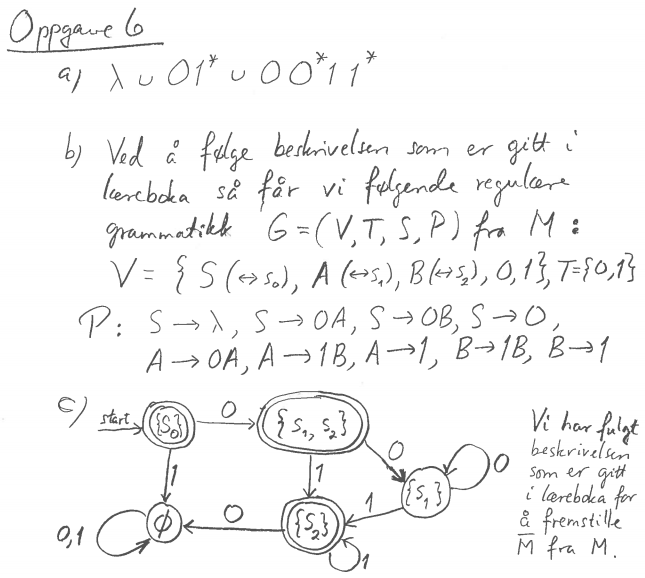 Oppgave 6
a) λ ∪ 01* ∪ 00*11*
b) Ved å følge beskrivelsen som er gitt i
læreboka så får vi følgende regulære
grammatikk G = (V, T, S, P) fra M :
V = { S (↔ s₀), A (↔ s₁), B (↔ s₂), 0, 1 }, T = {0,1}
P: S → λ, S → 0A, S → 0B, S → 0,
A → 0A, A → 1B, A → 1, B → 1B, B → 1
c)
start
{S₀}
0
{S₁, S₂}
0
{S₁}
0
1
1
1
0,1
∅
0
{S₂}
1
Vi har fulgt
beskrivelsen
som er gitt
i læreboka for
å fremstille
M̅ fra M.